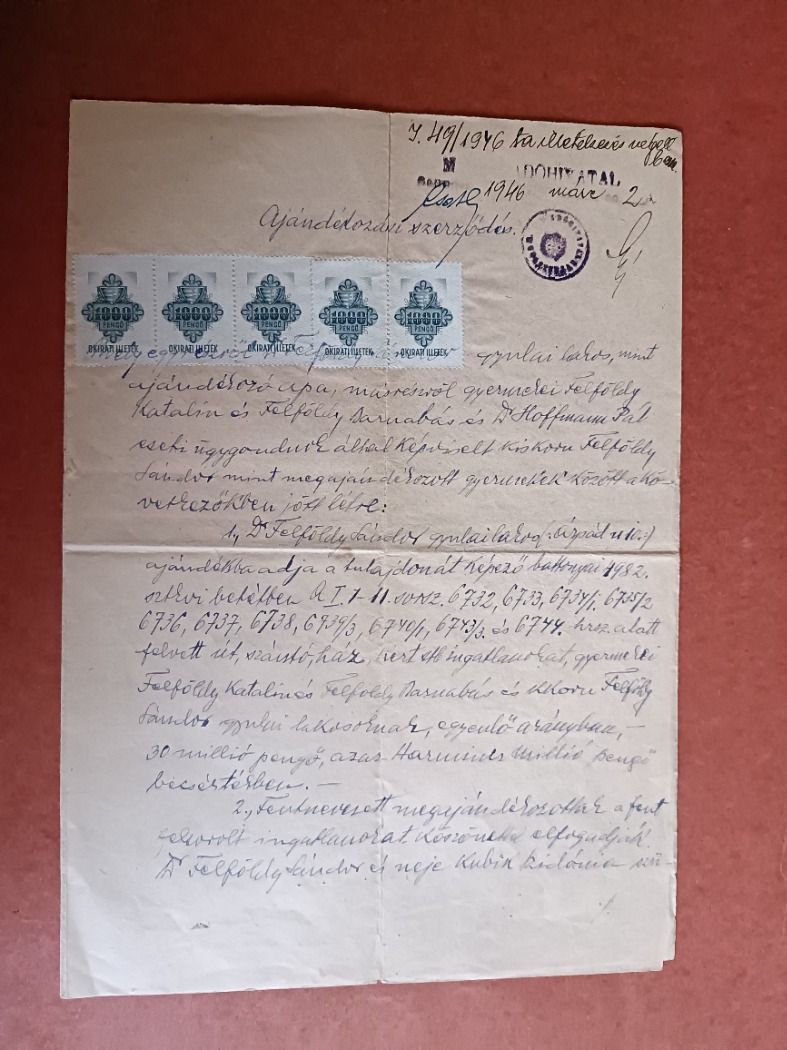 I. 49/1946 sz. illetékelőir. végett
ben.
M ADÓHIVATAL
1946 márc 2
Ajándékozási szerződés.
1000 1000 1000 1000 1000
PENGŐ PENGŐ PENGŐ PENGŐ PENGŐ
OKIRATI ILLETÉK OKIRATI ILLETÉK OKIRATI ILLETÉK OKIRATI ILLETÉK OKIRATI ILLETÉK
mely egyrészről Felföldy gyulai lakos, mint
ajándékozó apa, másrészről gyermekei Felföldy
Katalin és Felföldy Barnabás és Dr Hoffmann Pál
eseti ügygondnok által képviselt kiskoru Felföldy
Sándor mint megajándékozott gyermekek között a kö-
vetkezőkben jött létre:
1., Dr Felföldy Sándor gyulai lakos (:Árpád u 10.:)
ajándékba adja a tulajdonát képező battonyai 1982.
sztkvi betétben A I. 1-11. sorsz. 6732, 6733, 6734/1, 6735/2
6736, 6737, 6738, 6739/3, 6740/1, 6743/3. és 6744. hrsz. alatt
felvett út, szántó, ház, kert stb ingatlanokat, gyermekei
Felföldy Katalin és Felföldy Barnabás és kkoru Felföldy
Sándor gyulai lakosoknak, egyenlő arányban, –
30 millió pengő, azaz Harminc millió pengő
becsértékben. –
2., Fentnevezett megajándékozottak a fent
felsorolt ingatlanokat köszönettel elfogadják.
Dr Felföldy Sándor és neje Kubik Zidónia szü-